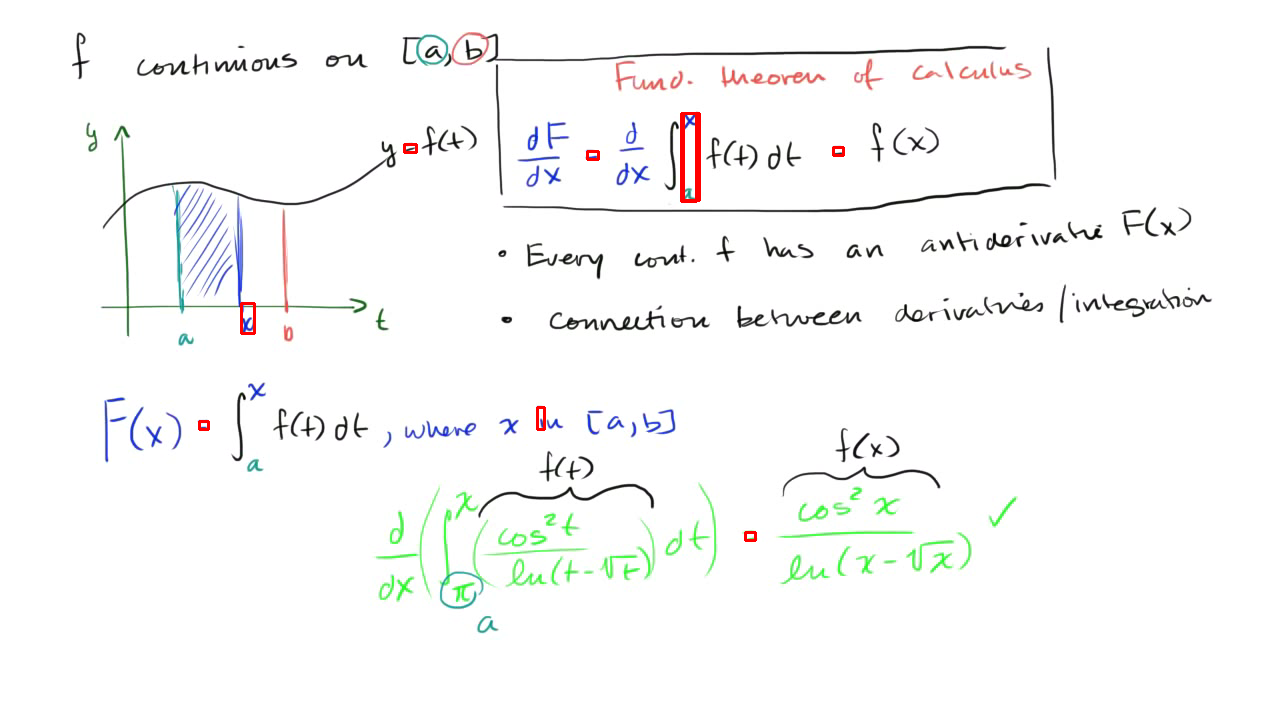 f continuous on [a, b]
Fund. theorem of calculus
dF/dx = d/dx ∫_a^x f(t) dt = f(x)
y
y = f(t)
a x b t
• Every cont. f has an antiderivative F(x)
• connection between derivatives/integration
F(x) = ∫_a^x f(t) dt, where x in [a, b]
f(t) f(x)
d/dx ( ∫_π^x ( cos²t / ln(t-√t) ) dt ) = cos² x / ln(x-√x) ✓
a